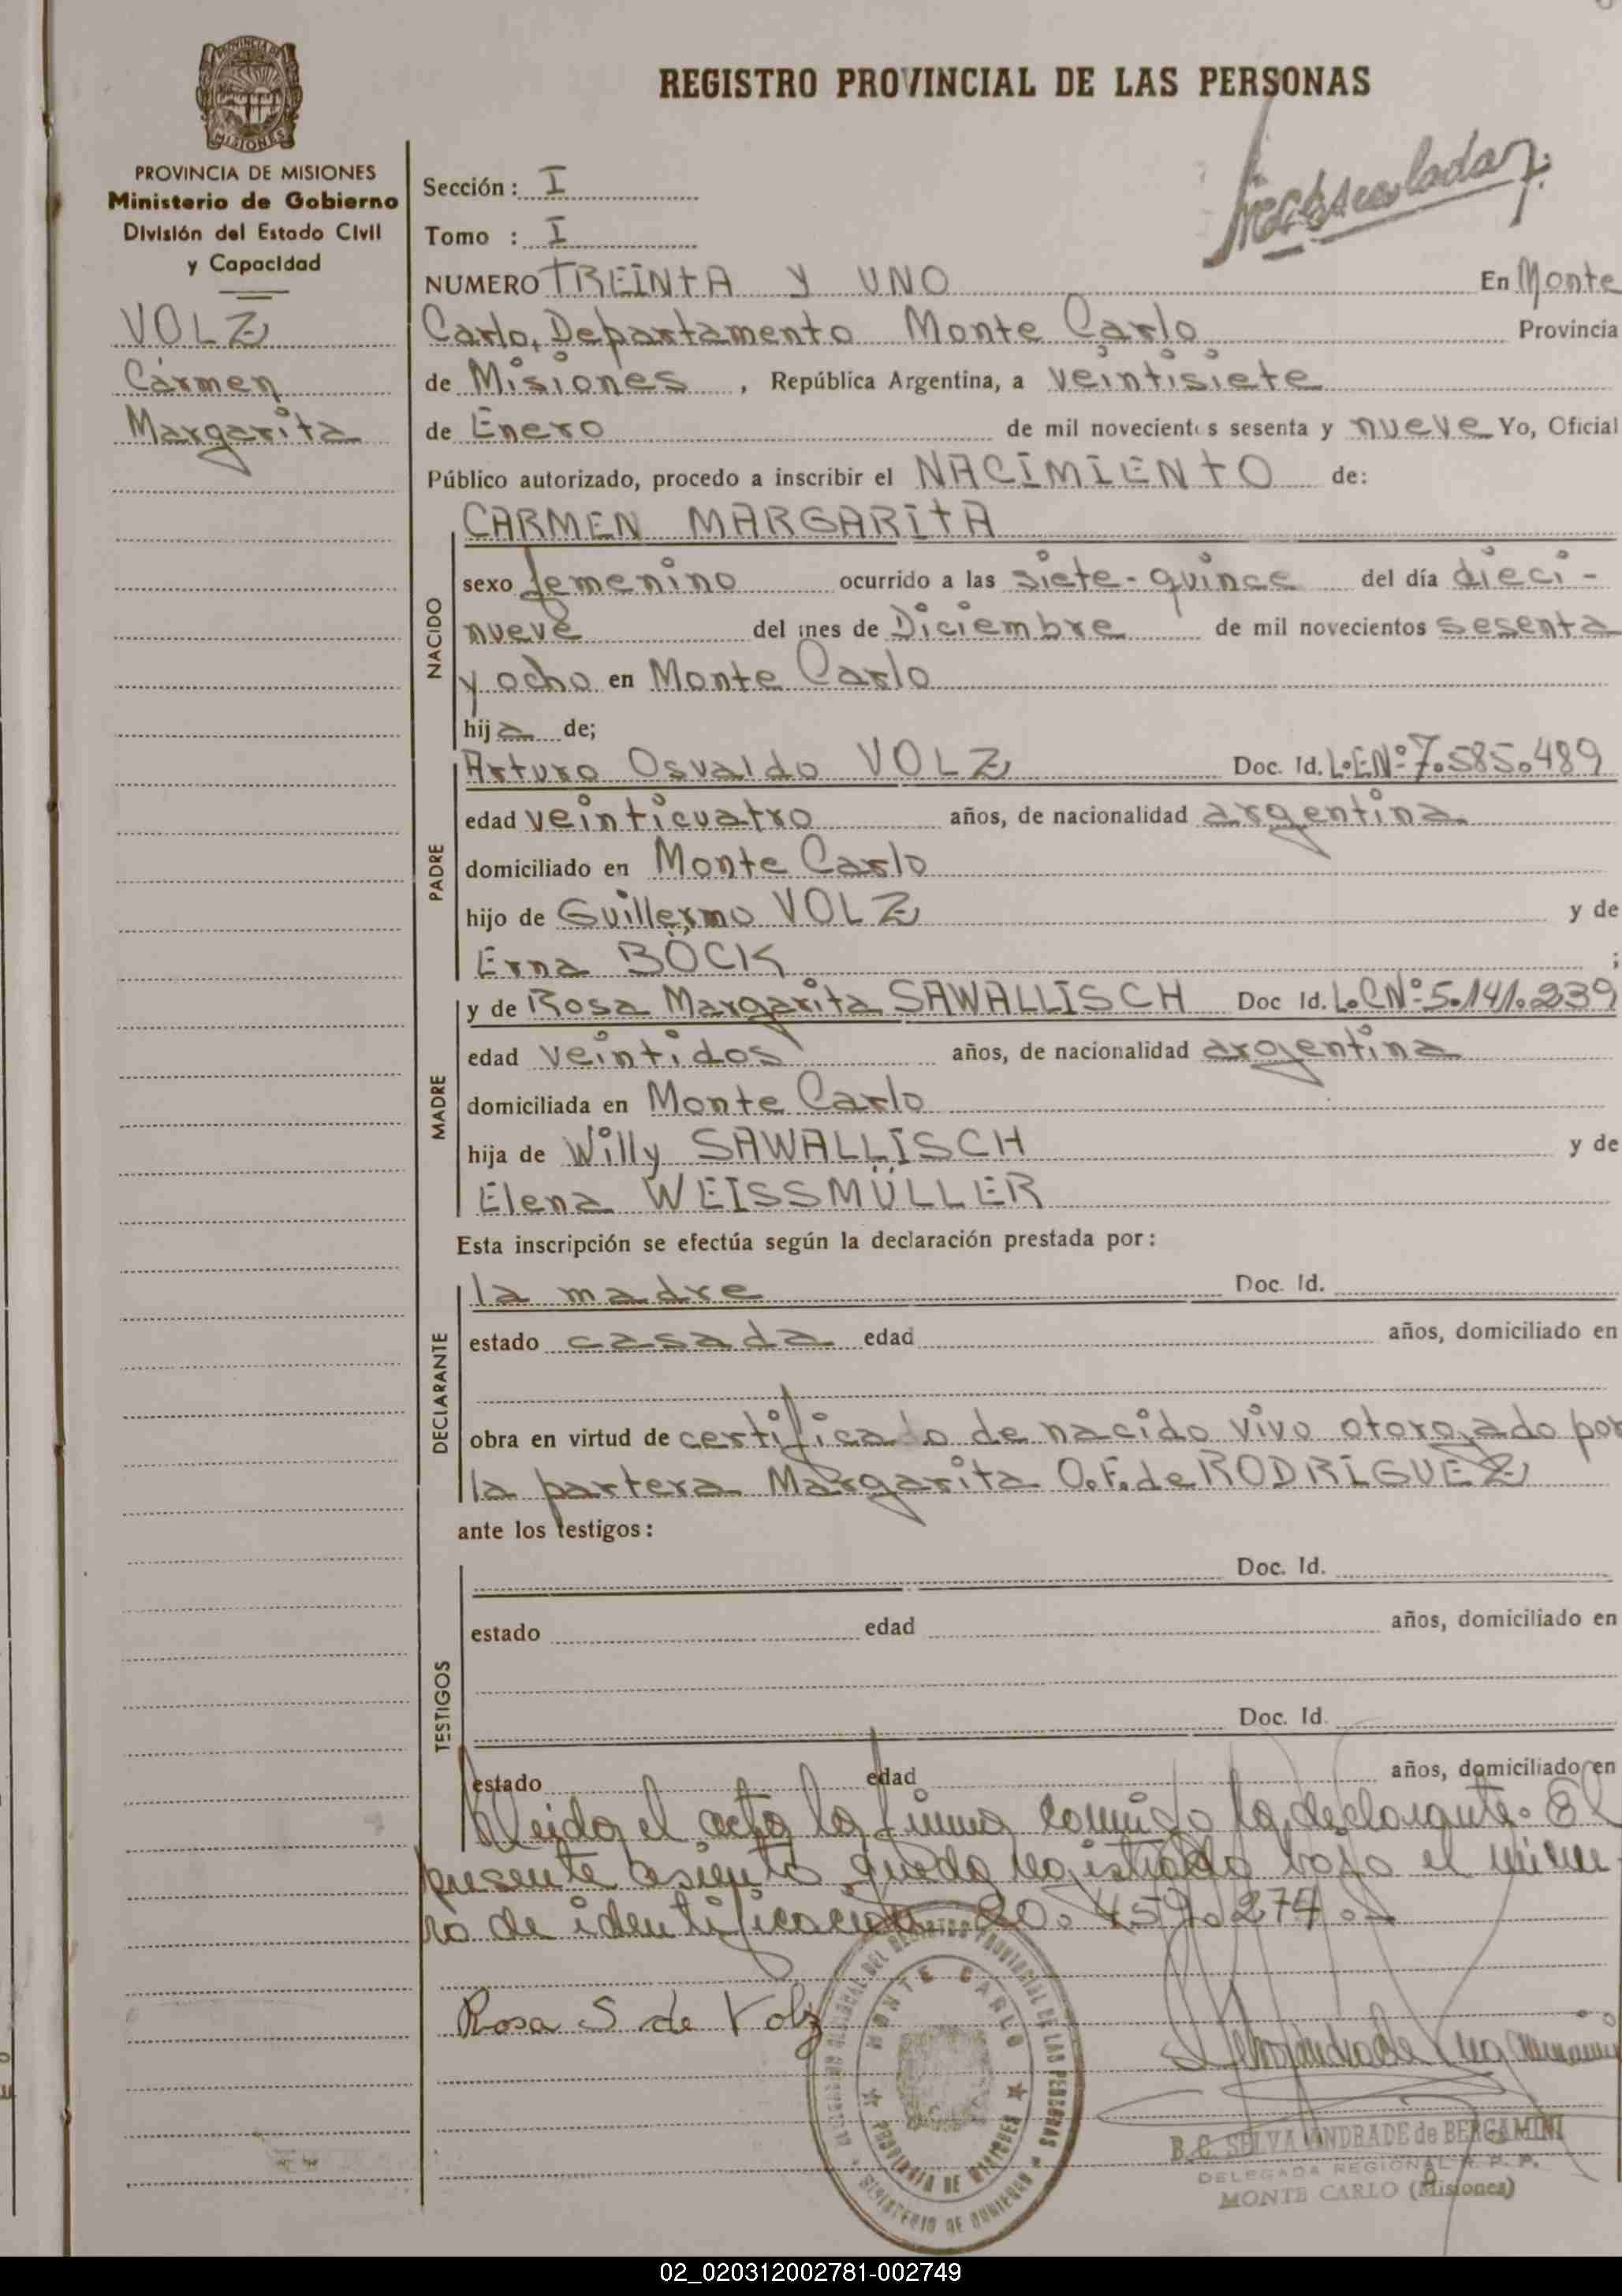 REGISTRO PROVINCIAL DE LAS PERSONAS
PROVINCIA DE MISIONES
MISIONES
PROVINCIA DE MISIONES
Ministerio de Gobierno
División del Estado Civil
y Capacidad
VOLZ
Carmen
Margarita
Sección: I
Tomo : I
NUMERO TREINTA Y UNO En Monte
Carlo, Departamento Monte Carlo Provincia
de Misiones, República Argentina, a veintisiete
de Enero de mil novecientos sesenta y nueve Yo, Oficial
Público autorizado, procedo a inscribir el NACIMIENTO de:
NACIDO
CARMEN MARGARITA
sexo femenino ocurrido a las siete-quince del día dieci-
nueve del mes de Diciembre de mil novecientos sesenta
y ocho en Monte Carlo
hija de;
PADRE
Arturo Osvaldo VOLZ Doc. Id. L.E.Nº 7.585.489
edad veinticuatro años, de nacionalidad argentina
domiciliado en Monte Carlo
hijo de Guillermo VOLZ y de
Erna BÖCK ;
MADRE
y de Rosa Margarita SAWALLISCH Doc Id. L.C.Nº 5.141.239
edad veintidos años, de nacionalidad argentina
domiciliada en Monte Carlo
hija de Willy SAWALLISCH y de
Elena WEISSMÜLLER
Esta inscripción se efectúa según la declaración prestada por:
DECLARANTE
la madre Doc. Id.
estado casada edad años, domiciliado en
obra en virtud de certificado de nacido vivo otorgado por
la partera Margarita O.F. de RODRIGUEZ
ante los testigos:
TESTIGOS
Doc. Id.
estado edad años, domiciliado en
Doc. Id.
estado edad años, domiciliado en
leida el acta la firma conmigo la declarante. El
presente asiento queda registrado bajo el núme-
ro de identificación 20.459.274.-
Rosa S de Volz
MONTE CARLO
PROVINCIA DE MISIONES
MINISTERIO DE GOBIERNO
DEL REGISTRO PROVINCIAL DE LAS PERSONAS
B. C. SELVA ANDRADE de BERGAMINI
DELEGADA REGIONAL R. P. P.
MONTE CARLO (Misiones)
02_020312002781-002749